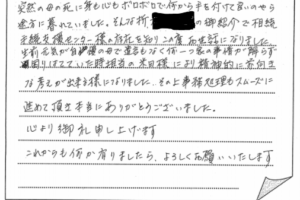 突然の母の死に身も心もボロボロで何から手を付けて良いのやら
途方に暮れていました。そんな折 の御紹介で相続
手続支援センター様の存在を知りこの度お世話になりました
自殺の母で遺言もなく何一つ私の事情が解らず
困りはてていた時担当の 様により精神的に前向き
な考えが出来る様になりました。その上事務処理もスムーズに
進めて頂き本当にありがとうございました。
心より御礼申し上げます
これからも何か有りましたら、よろしくお願いいたします